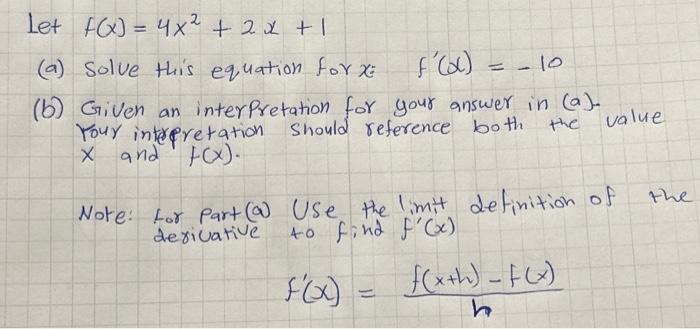 Let f(x) = 4x² + 2x + 1
(a) Solve this equation for x: f'(x) = -10
(b) Given an interpretation for your answer in (a).
Your interpretation should reference both the value
x and f(x).
Note: for part (a) Use the limit definition of the
derivative to find f'(x)
f'(x) = f(x+h) - f(x) / h